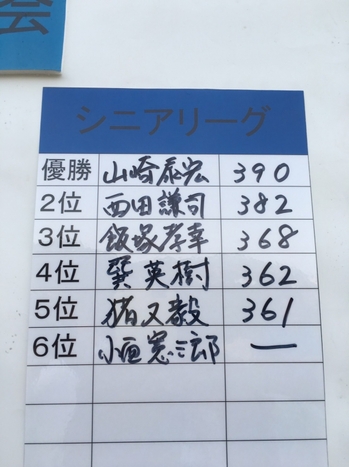 会
シニアリーグ
優勝 山崎泰宏 390
2位 西田謙司 382
3位 飯塚孝幸 368
4位 巽英樹 362
5位 猪又毅 361
6位 小垣憲三郎 —